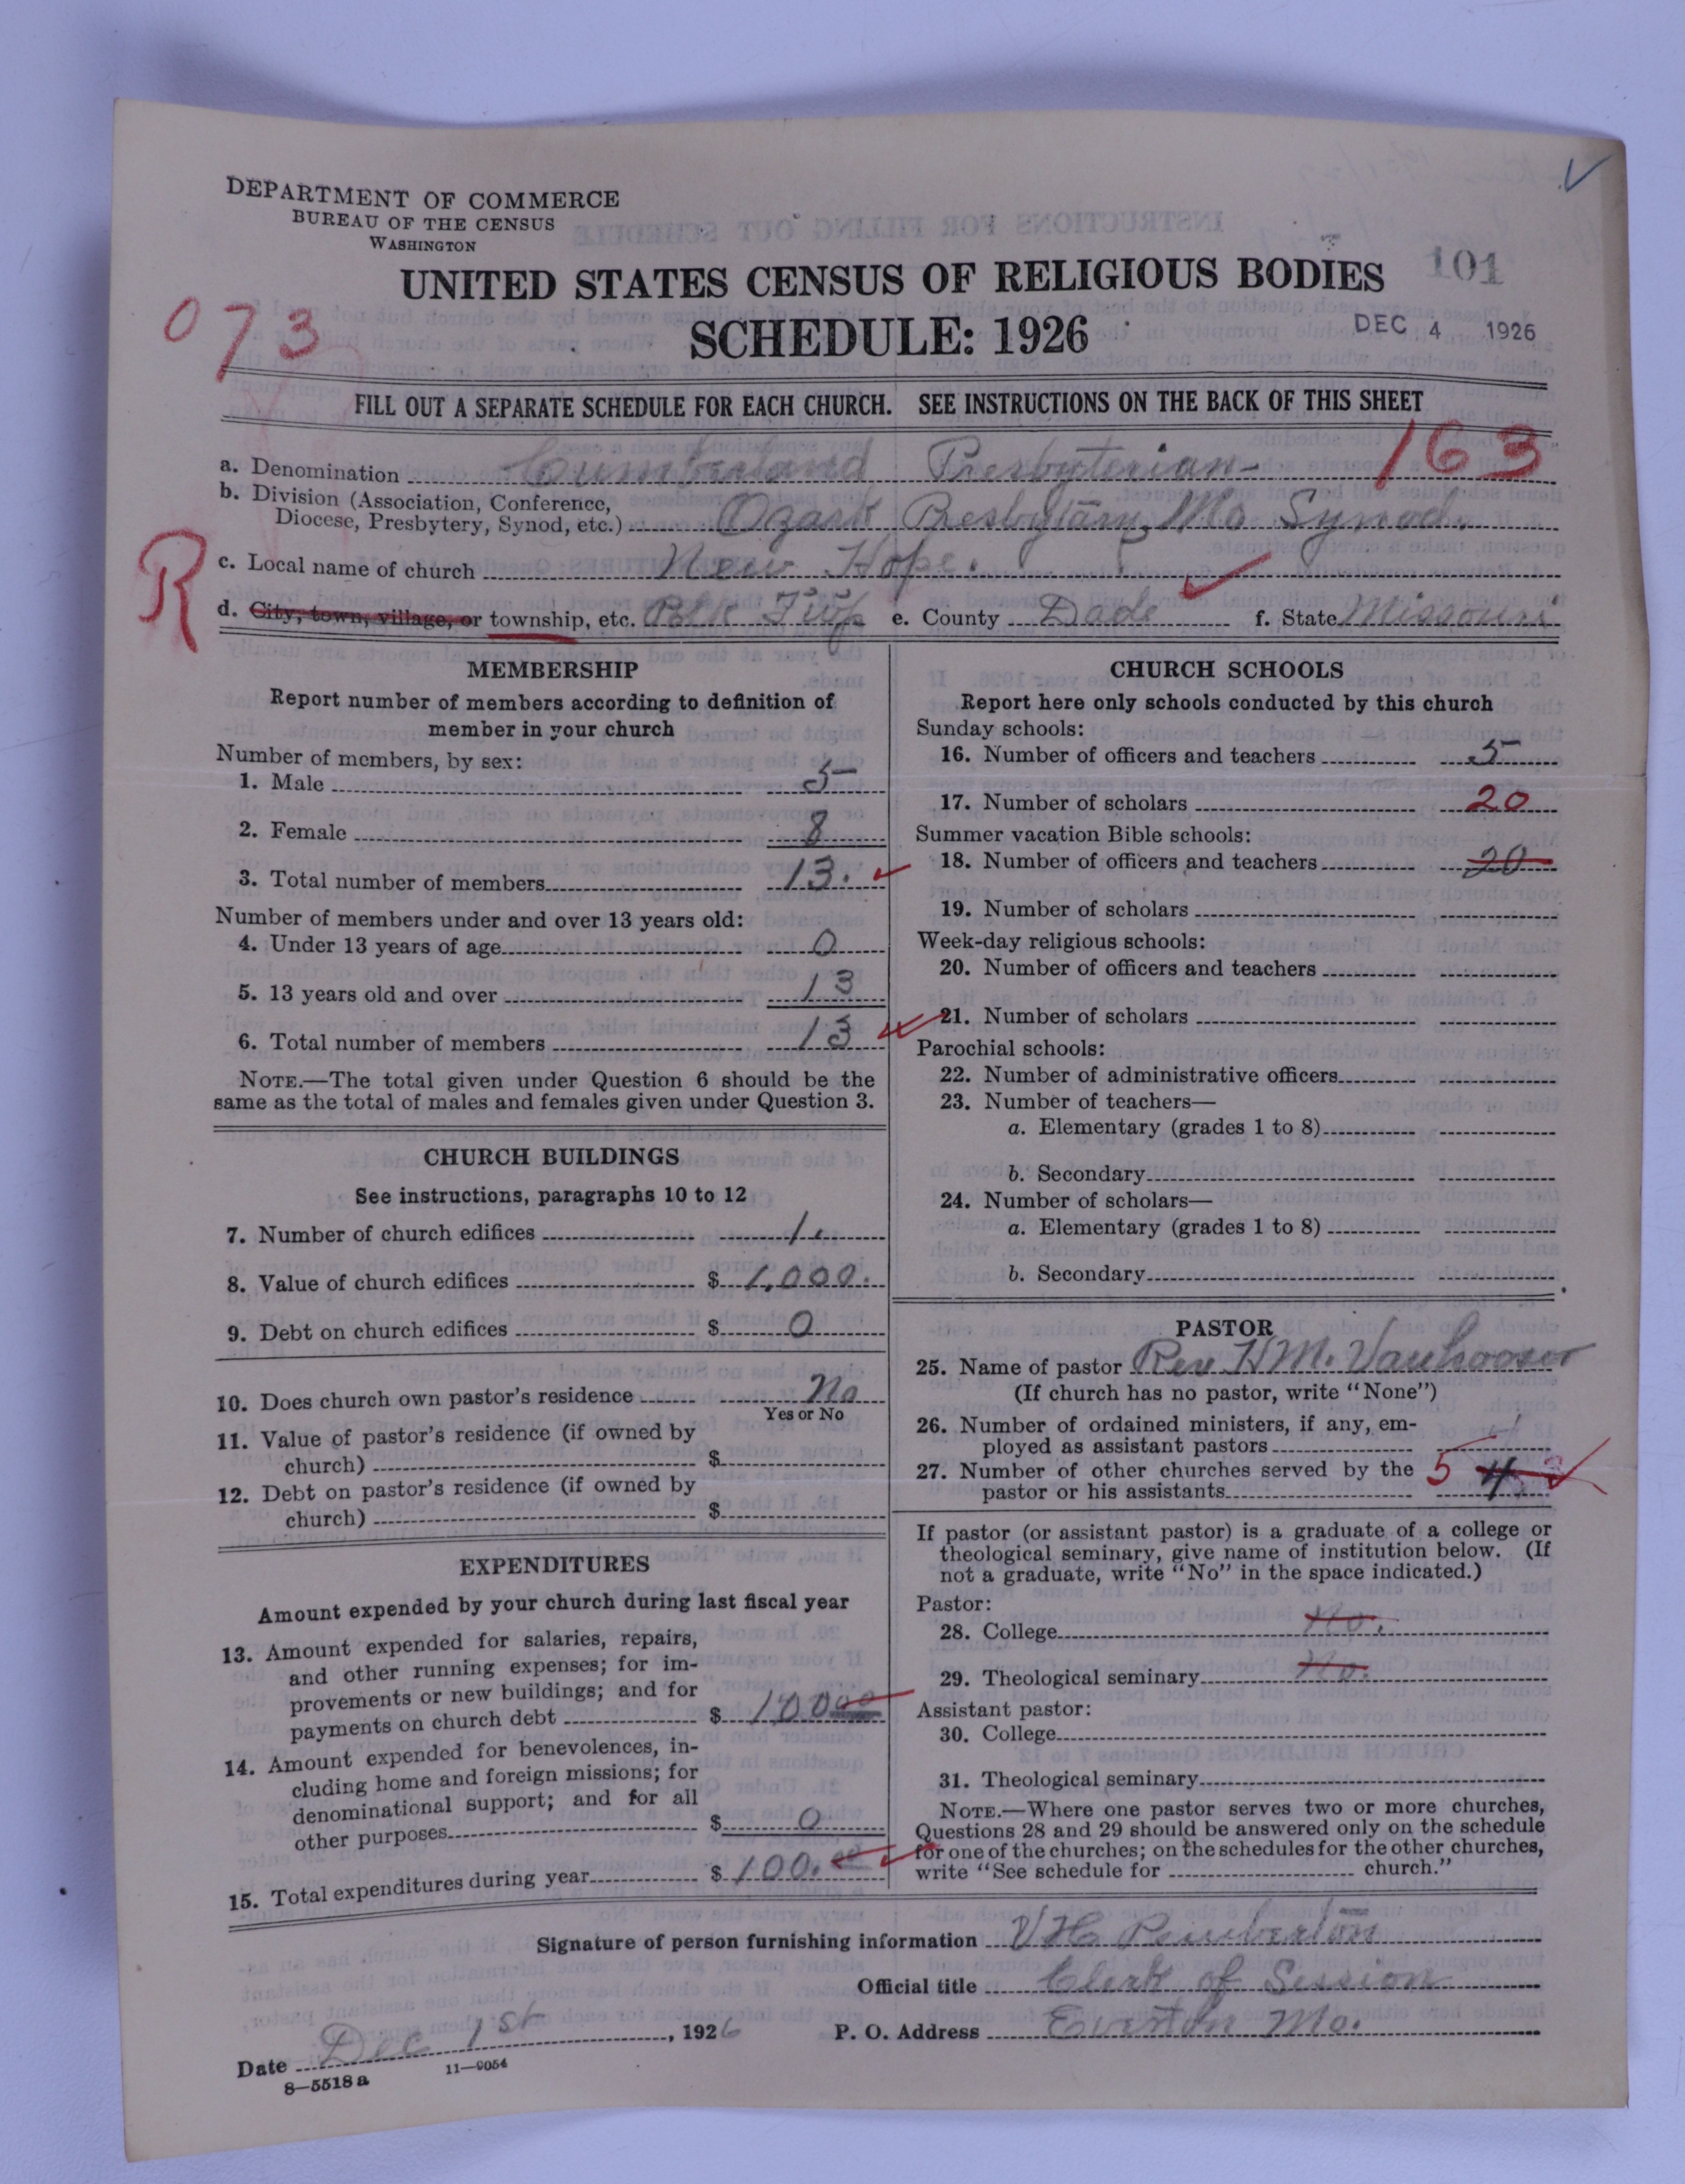 DEPARTMENT OF COMMERCE
BUREAU OF THE CENSUS
WASHINGTON
UNITED STATES CENSUS OF RELIGIOUS BODIES 101
073 SCHEDULE: 1926 DEC 4 1926
FILL OUT A SEPARATE SCHEDULE FOR EACH CHURCH. SEE INSTRUCTIONS ON THE BACK OF THIS SHEET
a. Denomination Cumberland Presbyterian 163
b. Division (Association, Conference,
Diocese, Presbytery, Synod, etc.) Ozark Presbytary, Mo Synod.
R
c. Local name of church New Hope.
d. City, town, village, or township, etc. Polk Twp e. County Dade f. State Missouri
MEMBERSHIP
Report number of members according to definition of
member in your church
Number of members, by sex:
1. Male 5
2. Female 8
3. Total number of members 13.
Number of members under and over 13 years old:
4. Under 13 years of age 0
5. 13 years old and over 13
6. Total number of members 13
NOTE.—The total given under Question 6 should be the
same as the total of males and females given under Question 3.
CHURCH BUILDINGS
See instructions, paragraphs 10 to 12
7. Number of church edifices 1.
8. Value of church edifices $ 1,000.
9. Debt on church edifices $ 0
10. Does church own pastor's residence No
Yes or No
11. Value of pastor's residence (if owned by
church) $
12. Debt on pastor's residence (if owned by
church) $
EXPENDITURES
Amount expended by your church during last fiscal year
13. Amount expended for salaries, repairs,
and other running expenses; for im-
provements or new buildings; and for
payments on church debt $ 100 00
14. Amount expended for benevolences, in-
cluding home and foreign missions; for
denominational support; and for all
other purposes $ 0
15. Total expenditures during year $ 100. 00
CHURCH SCHOOLS
Report here only schools conducted by this church
Sunday schools:
16. Number of officers and teachers 5
17. Number of scholars 20
Summer vacation Bible schools:
18. Number of officers and teachers 20
19. Number of scholars
Week-day religious schools:
20. Number of officers and teachers
21. Number of scholars
Parochial schools:
22. Number of administrative officers
23. Number of teachers—
a. Elementary (grades 1 to 8)
b. Secondary
24. Number of scholars—
a. Elementary (grades 1 to 8)
b. Secondary
PASTOR
25. Name of pastor Rev H.M. Vanhooser
(If church has no pastor, write "None")
26. Number of ordained ministers, if any, em-
ployed as assistant pastors
27. Number of other churches served by the
pastor or his assistants 5 4
If pastor (or assistant pastor) is a graduate of a college or
theological seminary, give name of institution below. (If
not a graduate, write "No" in the space indicated.)
Pastor:
28. College No.
29. Theological seminary No.
Assistant pastor:
30. College
31. Theological seminary
NOTE.—Where one pastor serves two or more churches,
Questions 28 and 29 should be answered only on the schedule
for one of the churches; on the schedules for the other churches,
write "See schedule for church."
Signature of person furnishing information V H Pemberton
Official title Clerk of Session
Date Dec 1st, 1926 P. O. Address Everton Mo.
8—5518 a 11—9054